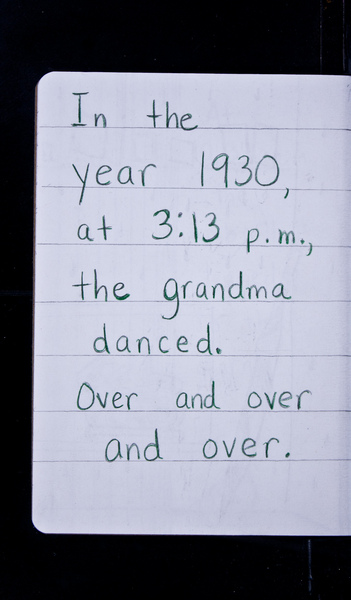 In the
year 1930,
at 3:13 p.m.,
the grandma
danced.
Over and over
and over.